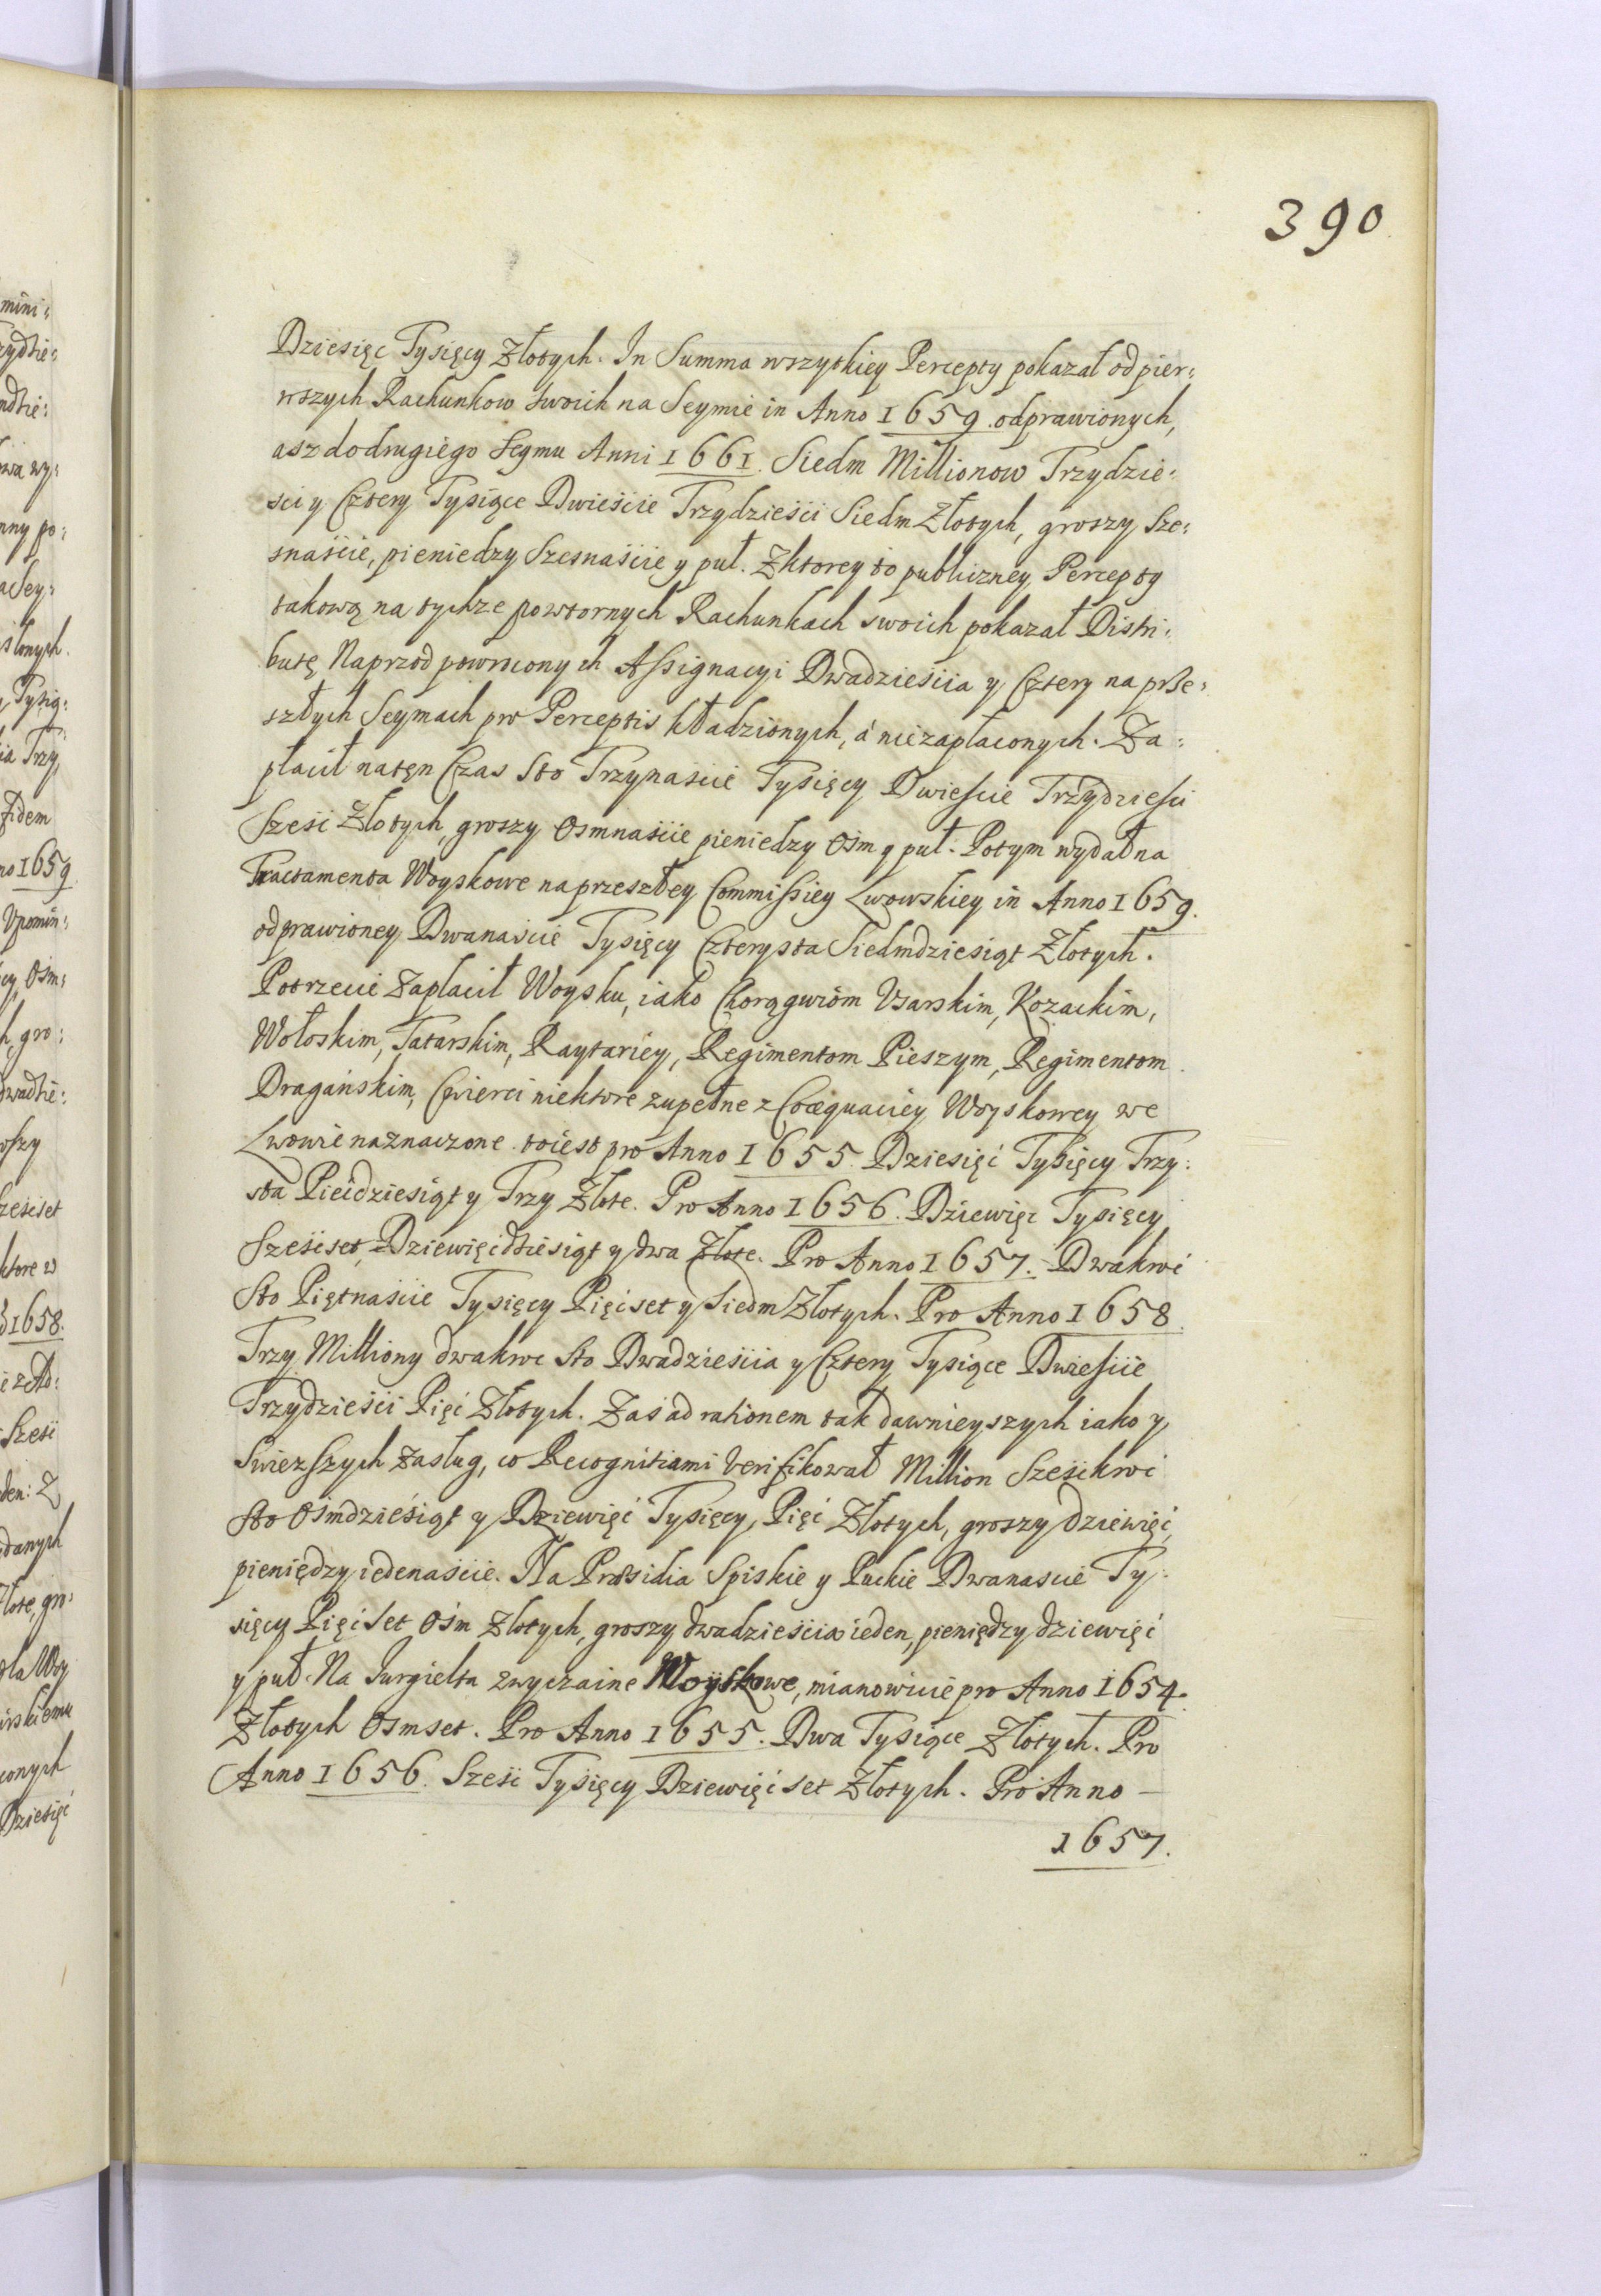 390
Dziesięc Tysięcy Złotych. In Summa wszytkiey Percepty pokazał od pier:
wszych Rachunkow swoich na Seymie in Anno 1659. odprawionych,
asz do drugiego Seymu Anni 1661. Siedm Millionow Trzydzie:
sci y Cztery Tysiące Dwieście Trzydzieści Siedm Złotych, groszy Sze:
snaście, pieniedzy Szesnaście y puł. Z ktorey to publiczney Percepty
takową na tychze powtornych Rachunkach swoich pokazał Distri:
butę Naprzod powroconych Assignacyi Dwadzieścia y Cztery na prze:
szłych Seymach pro Perceptis kładzionych, á niezapłaconych. Za:
płacił natęn Czas Sto Trzynaście Tysięcy Dwieście Trzydzieści
Sześć Złotych, groszy Osmnaście pieniedzy Ośm y puł. Potym wydał na
Tractamenta Woyskowe na przeszłey Commissiey Lwowskiey in Anno 1659.
odprawioney Dwanaście Tysięcy Czterysta Siedmdziesiąt Złotych.
Potrzecie Zapłacił Woysku, iako Chorągwiom Usarskim, Kozackim,
Wołoskim, Tatarskim, Raytariey, Regimentom Pieszym, Regimentom
Dragańskim, Cwierci niektore zupełne z Coæquaciey Woyskowey we
Lwowie naznaczone. to iest pro Anno 1655. Dziesięć Tysięcy Trzy:
sta Piećdziesiąt y Trzy Złote. Pro Anno 1656. Dziewięc Tysięcy
Sześćset, Dziewięćdziesiąt y dwa Złote. Pro Anno 1657. Dwakroć
Sto Piętnaście Tysięcy Pięćset y Siedm Złotych. Pro Anno 1658.
Trzy Milliony dwakroc Sto Dwadzieścia y Cztery Tysiące Dwieście
Trzydzieści Pięć Złotych. Zaś ad rationem tak dawnieyszych iako y
Swiezszych Zasług, co Recognitiami verifikował Million Sześćkroć
Sto Ośmdziesiąt y Dziewięć Tysięcy, Pięć Złotych, groszy dziewięć,
pieniędzy iedenaście. Na Præsidia Spiskie y Puckie Dwanaście Ty:
sięcy Pięćset Ośm Złotych, groszy dwadzieścia ieden, pieniędzy dziewięć
y puł. Na Jurgielta zwyczaine Woyskowe, mianowicie pro Anno 1654.
Złotych Osmset. Pro Anno 1655. Dwa Tysiące Złotych. Pro
Anno 1656. Sześć Tysięcy Dziewięćset Złotych. Pro Anno –
1657.